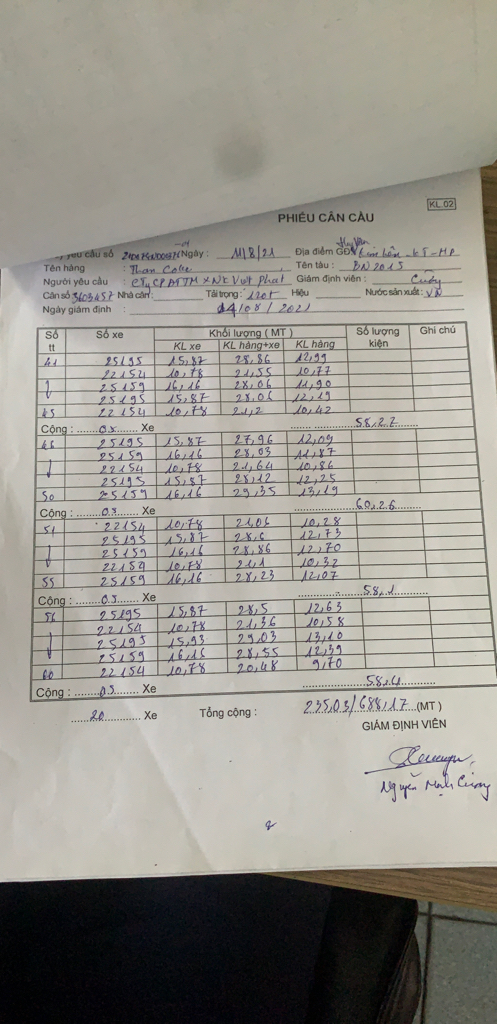 KL.02
PHIẾU CÂN CẦU
yêu cầu số Ngày : 11/8/21 Địa điểm GĐ
Tên hàng : Than Coke Tên tàu : BN 2015
Người yêu cầu : CTy CP ĐTTM XNK Việt Phát Giám định viên : Cường
Cân số 3603457 Nhà cân : Tải trọng : 120T Hiệu : Nước sản xuất : VN
Ngày giám định : 14/08/2021
Số tt Số xe Khối lượng ( MT ) Số lượng kiện Ghi chú
KL xe KL hàng+xe KL hàng
41 25195 15,87 28,86 12,99
22154 10,78 21,55 10,77
25159 16,16 28,06 11,90
25195 15,87 28,06 12,19
45 22154 10,78 21,2 10,42
Cộng : 05 Xe 58,27
46 25195 15,87 27,96 12,09
25159 16,16 28,03 11,87
22154 10,78 21,64 10,86
25195 15,87 28,12 12,25
50 25159 16,16 29,35 13,19
Cộng : 05 Xe 60,26
51 22154 10,78 21,06 10,28
25195 15,87 28,6 12,73
25159 16,16 28,86 12,70
22154 10,78 21,1 10,32
55 25159 16,16 28,23 12,07
Cộng : 05 Xe 58,1
56 25195 15,87 28,5 12,63
22154 10,78 21,36 10,58
25193 15,93 29,03 13,10
25159 16,16 28,55 12,39
60 22154 10,78 20,48 9,70
Cộng : 05 Xe 58,4
20 Xe Tổng cộng : 235,03/688,17 (MT )
GIÁM ĐỊNH VIÊN
Nguyễn Mạnh Cường